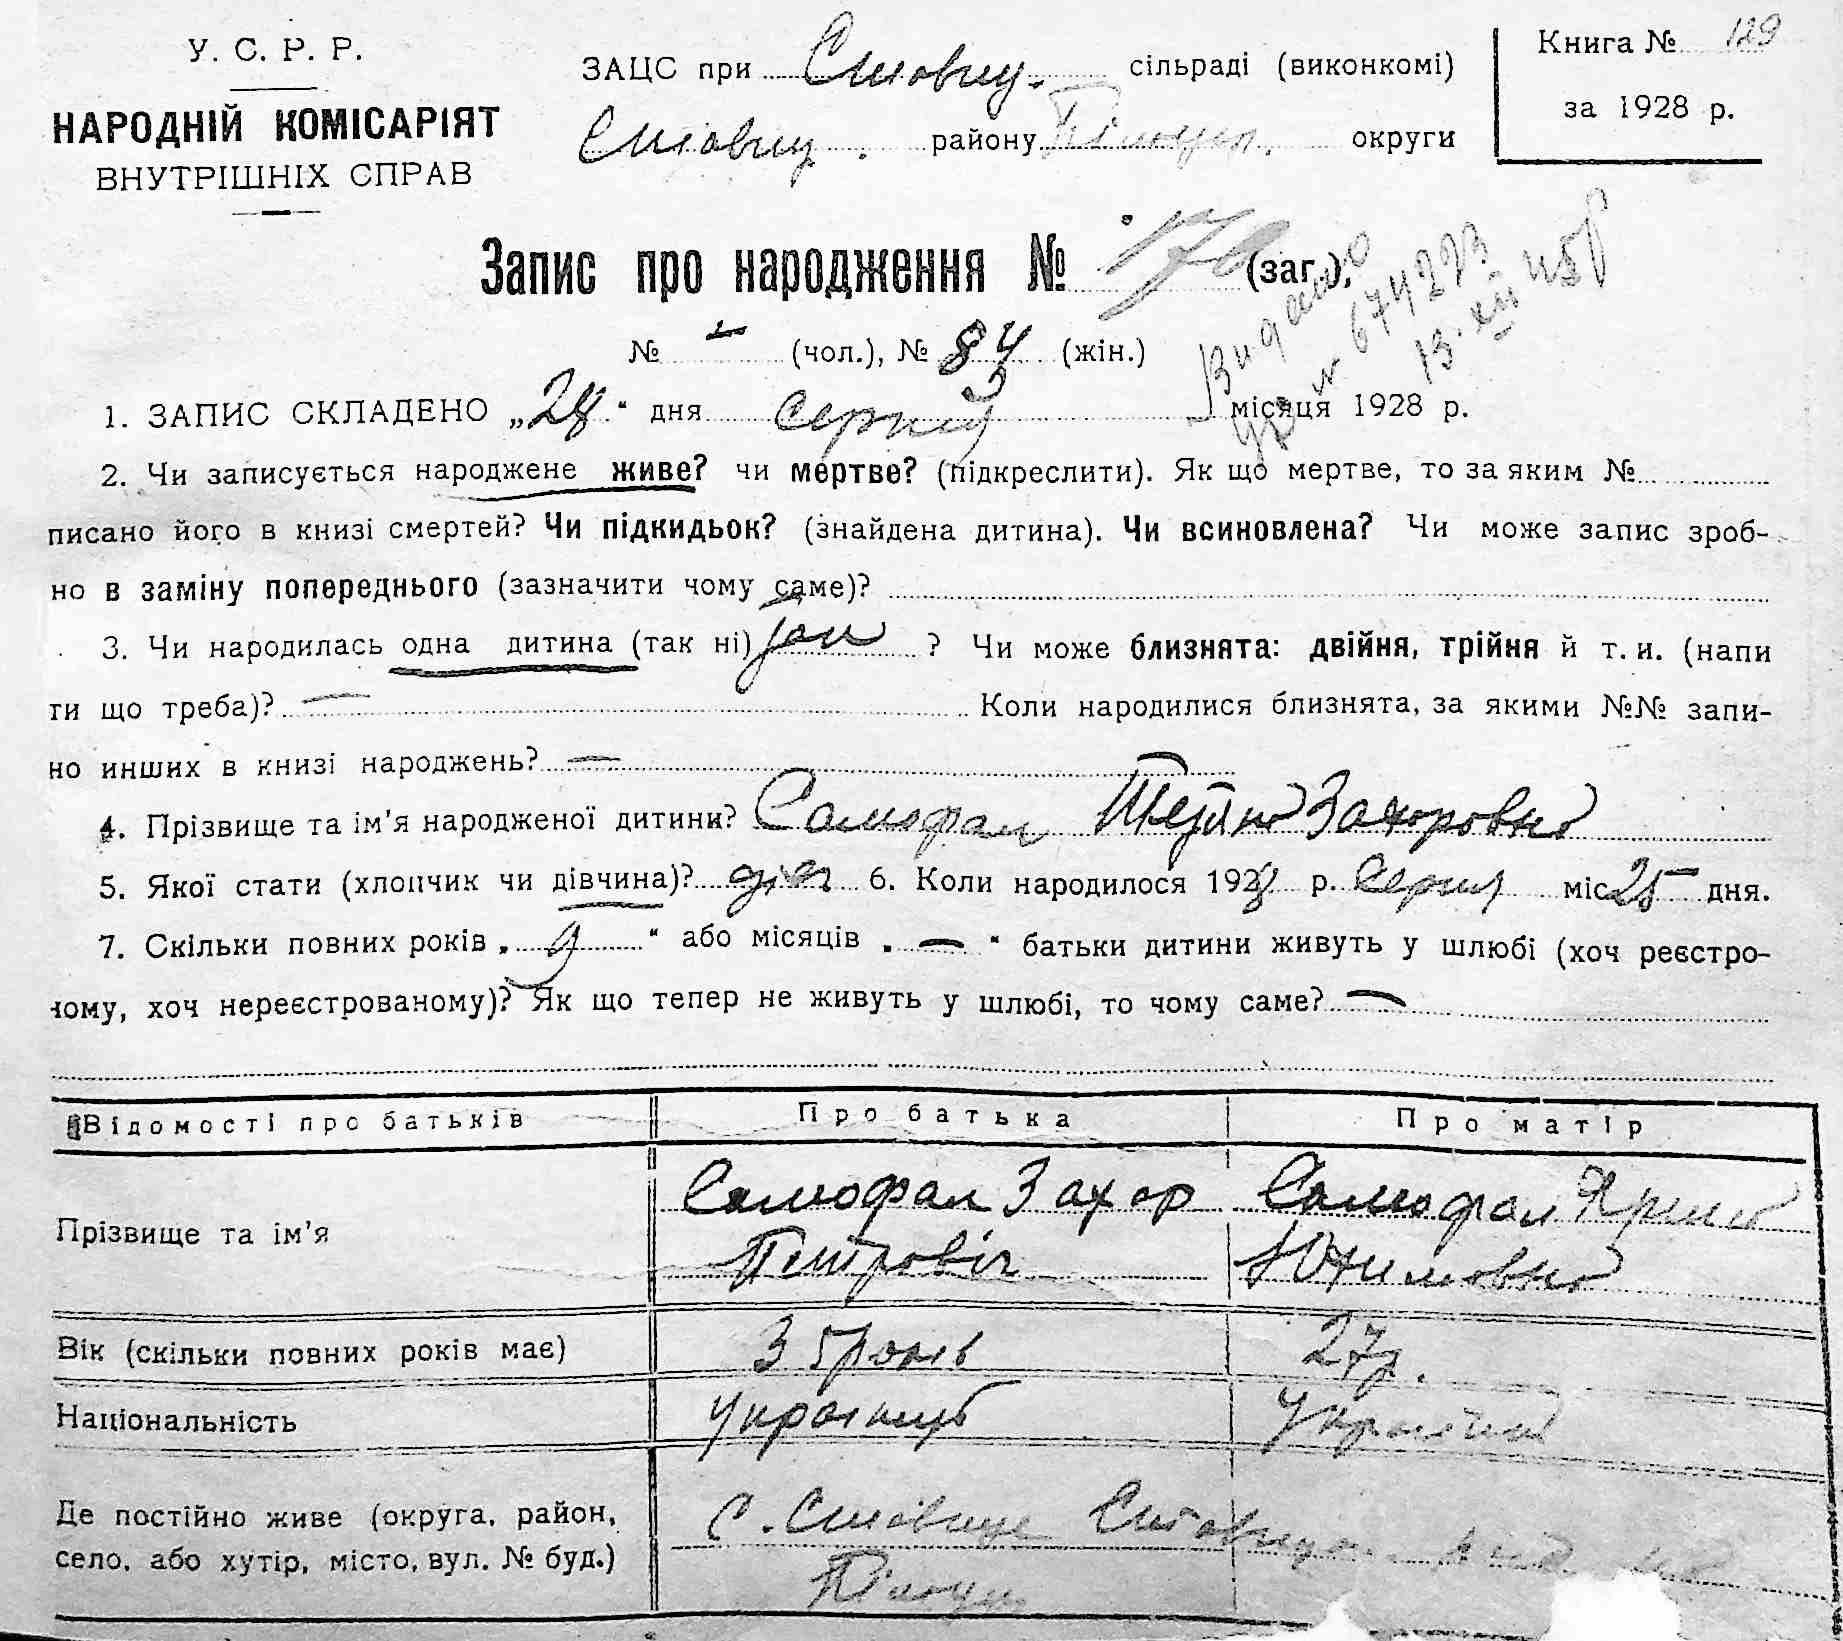 У. С. Р. Р.
НАРОДНІЙ КОМІСАРІЯТ
ВНУТРІШНІХ СПРАВ
ЗАЦС при Ставищ. сільраді (виконкомі)
Ставищ. району Білоцер. округи
Книга № 129
за 1928 р.
Запис про народження № 176 (заг.),
№ – (чол.), № 84 (жін.)
Видано
№ 674223
13.XII 45р
1. ЗАПИС СКЛАДЕНО „28“ дня серпня місяця 1928 р.
2. Чи записується народжене живе? чи мертве? (підкреслити). Як що мертве, то за яким №
писано його в книзі смертей? Чи підкидьок? (знайдена дитина). Чи всиновлена? Чи може запис зроб-
но в заміну попереднього (зазначити чому саме)?
3. Чи народилась одна дитина (так ні) ? Чи може близнята: двійня, трійня й т. и. (напи
ти що треба)? — Коли народилися близнята, за якими №№ запи-
но инших в книзі народжень? —
4. Прізвище та ім’я народженої дитини? Самофал Тетяна Захоровна
5. Якої стати (хлопчик чи дівчина)? дівч 6. Коли народилося 1928 р. Серпня міс 25 дня.
7. Скільки повних років „ 9 “ або місяців „ — “ батьки дитини живуть у шлюбі (хоч реєстро-
ному, хоч нереєстрованому)? Як що тепер не живуть у шлюбі, то чому саме? —
Відомості про батьків Про батька Про матір
Прізвище та ім’я Самофал Захор Самофал Ярина
Петровіч Юхимовна
Вік (скільки повних років має) 35 років 27р.
Національність Українець Українка
Де постійно живе (округа, район, с. Ставище Ставищ.
село, або хутір, місто, вул. № буд.) Білоцер